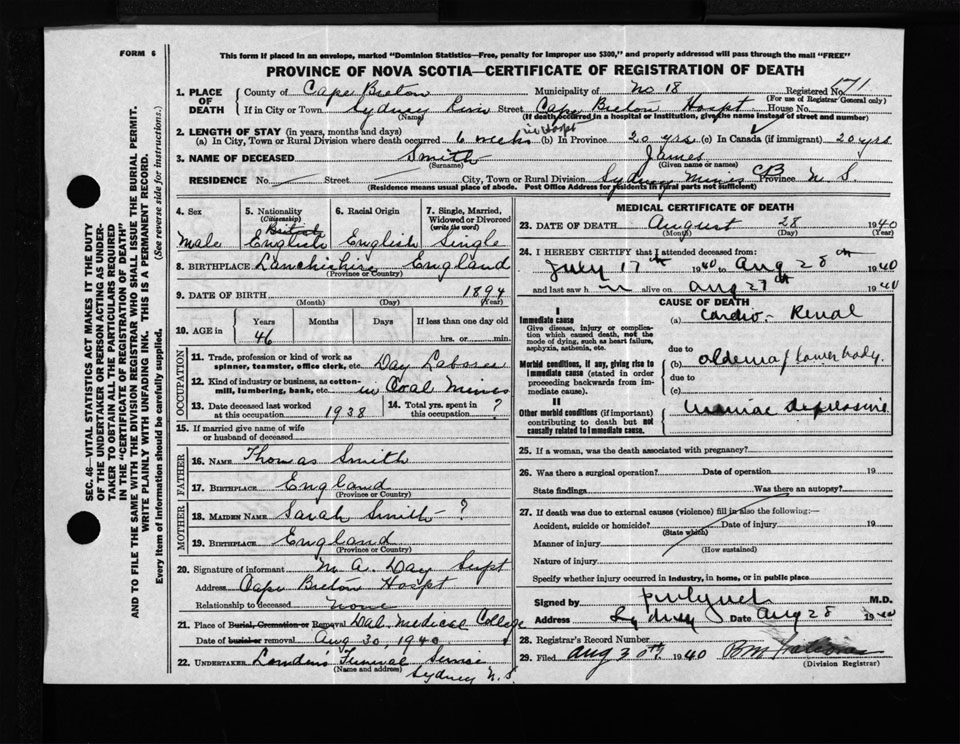 FORM 6
This form if placed in an envelope, marked "Dominion Statistics—Free, penalty for improper use $300," and properly addressed will pass through the mail "FREE"
PROVINCE OF NOVA SCOTIA—CERTIFICATE OF REGISTRATION OF DEATH
1. PLACE OF DEATH
County of Cape Breton Municipality of No 18 Registered No. 171
(For use of Registrar General only)
If in City or Town Sydney River Street Cape Breton Hospt. House No.
(Name) (If death occurred in a hospital or institution, give the name instead of street and number)
2. LENGTH OF STAY (in years, months and days)
(a) In City, Town or Rural Division where death occurred 6 weeks in Hospt (b) In Province 20 yrs (c) In Canada (if immigrant) 20 yrs
3. NAME OF DECEASED Smith James
(Surname) (Given name or names)
RESIDENCE No. Street City, Town or Rural Division Sydney Mines CB Province N. S.
(Residence means usual place of abode. Post Office Address for residents in rural parts not sufficient)
4. Sex
Male
5. Nationality (Citizenship)
British
English
6. Racial Origin
English
7. Single, Married, Widowed or Divorced (write the word)
Single
8. BIRTHPLACE England
(Province or Country)
9. DATE OF BIRTH 1894
(Month) (Day) (Year)
10. AGE in
Years Months Days If less than one day old
46 hrs. or min.
OCCUPATION
11. Trade, profession or kind of work as spinner, teamster, office clerk, etc. Day Laborer
12. Kind of industry or business, as cotton-mill, lumbering, bank, etc. in Coal Mines
13. Date deceased last worked at this occupation 1938
14. Total yrs. spent in this occupation ?
15. If married give name of wife or husband of deceased
FATHER
16. NAME Thomas Smith
17. BIRTHPLACE England
(Province or Country)
MOTHER
18. MAIDEN NAME Sarah Smith ?
19. BIRTHPLACE England
(Province or Country)
20. Signature of informant M. A. Day Supt
Address Cape Breton Hospt
Relationship to deceased none
21. Place of Burial, Cremation or Removal Dal. Medical College
Date of burial or removal Aug 30, 1940
22. UNDERTAKER Funeral Service
(Name and address) Sydney N. S.
MEDICAL CERTIFICATE OF DEATH
23. DATE OF DEATH August 28 1940
(Month) (Day) (Year)
24. I HEREBY CERTIFY that I attended deceased from:
July 17th 1940 to Aug 28th 1940
and last saw h im alive on Aug 27th 1940
CAUSE OF DEATH
I
Immediate cause
Give disease, injury or complication which caused death, not the mode of dying, such as heart failure, asphyxia, asthenia, etc.
(a) Cardio - Renal
due to
Morbid conditions, if any, giving rise to immediate cause (stated in order proceeding backwards from immediate cause).
(b) oedema / lower body.
due to
(c)
II
Other morbid conditions (if important) contributing to death but not causally related to immediate cause.
maniac depressive
25. If a woman, was the death associated with pregnancy?
26. Was there a surgical operation? Date of operation 19
State findings Was there an autopsy?
27. If death was due to external causes (violence) fill in also the following:—
Accident, suicide or homicide? Date of injury 19
(State which)
Manner of injury
(How sustained)
Nature of injury
Specify whether injury occurred in industry, in home, or in public place
Signed by M.D.
Address Sydney Date Aug 28 1940
28. Registrar's Record Number
29. Filed Aug 30th. 1940
(Division Registrar)
SEC. 46—VITAL STATISTICS ACT MAKES IT THE DUTY
OF THE UNDERTAKER OR PERSON ACTING AS UNDER-
TAKER TO OBTAIN ALL THE PARTICULARS REQUIRED
IN THE "CERTIFICATE OF REGISTRATION OF DEATH"
AND TO FILE THE SAME WITH THE DIVISION REGISTRAR WHO SHALL ISSUE THE BURIAL PERMIT.
WRITE PLAINLY WITH UNFADING INK. THIS IS A PERMANENT RECORD.
Every item of information should be carefully supplied. (See reverse side for instructions.)